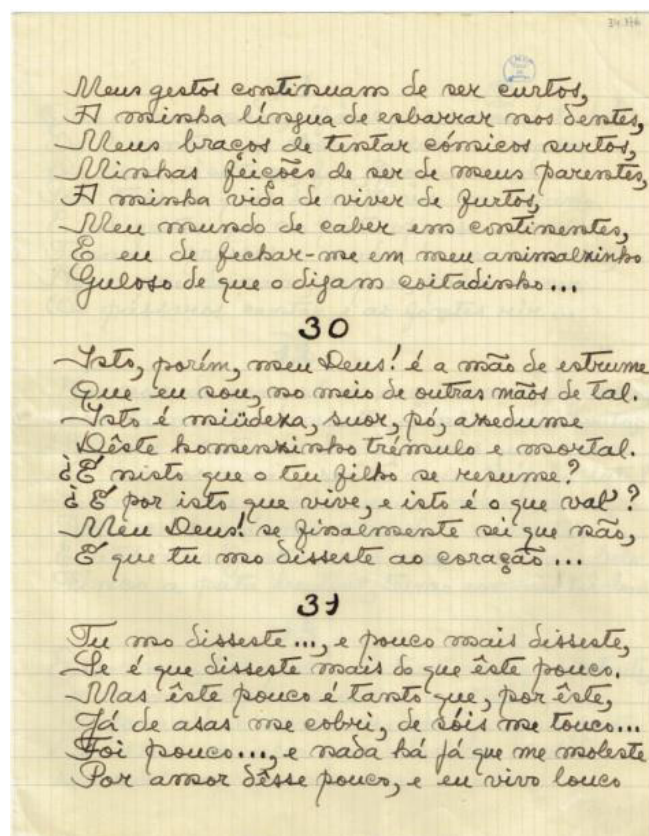 34.376
Meus gestos continuam de ser curtos,
A minha língua de esbarrar nos dentes,
Meus braços de tentar cómicos surtos,
Minhas feições de ser de meus parentes,
A minha vida de viver de furtos,
Meu mundo de caber em continentes,
E eu de fechar-me em meu animalzinho
Guloso de que o digam coitadinho...
30
Isto, porém, meu Deus! é a mão de estrume
Que eu sou, no meio de outras mãos de tal.
Isto é miüdeza, suor, pó, azedume
Dêste homenzinho trémulo e mortal.
¿É nisto que o teu filho se resume?
¿É por isto que vive, e isto é o que val'?
Meu Deus! se finalmente sei que não,
É que tu mo disseste ao coração...
31
Tu mo disseste..., e pouco mais disseste,
Se é que disseste mais do que êste pouco.
Mas êste pouco é tanto que, por êste,
Já de asas me cobri, de sóis me touco...
Foi pouco..., e nada há já que me moleste
Por amor dêsse pouco, e eu vivo louco